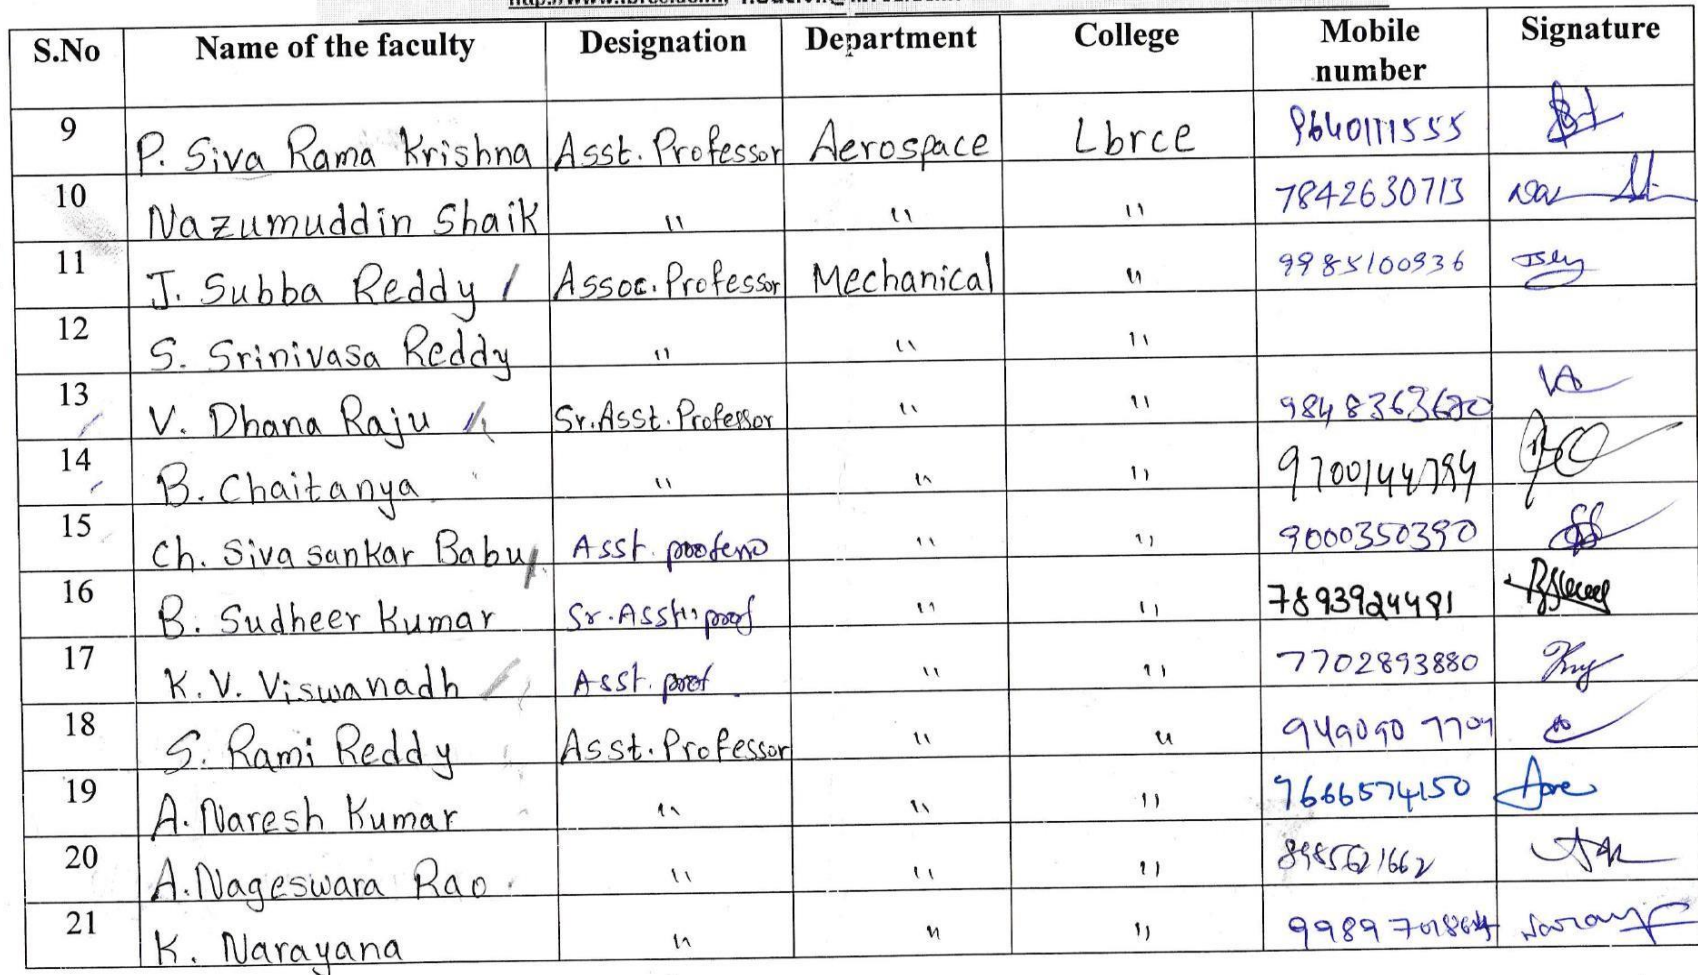 S.No Name of the faculty Designation Department College Mobile number Signature
9 P. Siva Rama Krishna Asst. Professor Aerospace Lbrce 9640111555
10 Nazumuddin Shaik " " " 7842630713
11 J. Subba Reddy Assoc. Professor Mechanical " 9985100936
12 S. Srinivasa Reddy " " "
13 V. Dhana Raju Sr. Asst. Professor " "
14 B. Chaitanya " " " 9700144784
15 Ch. Siva sankar Babu Asst. " " 9000350390
16 B. Sudheer Kumar Sr. Asst. prof " " 7893924491
17 K. V. Viswanadh Asst. prof " " 7702893880
18 S. Rami Reddy Asst. Professor " " 9490907709
19 A. Naresh Kumar " " " 9666574150
20 A. Nageswara Rao " " " 8985621662
21 K. Narayana " " "